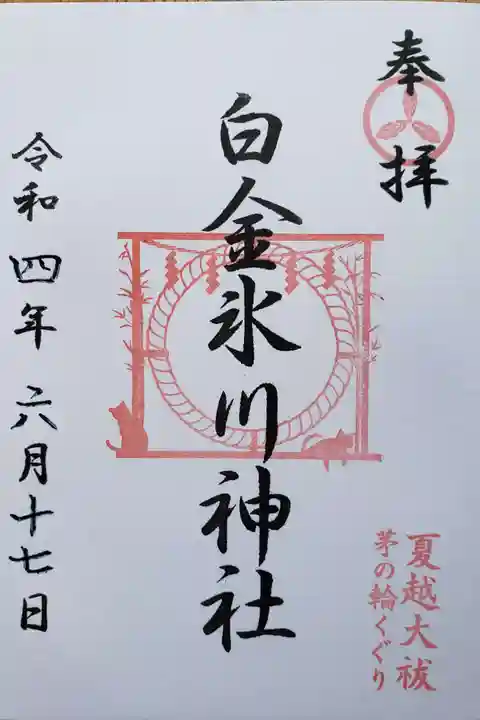 奉拝
白金氷川神社
令和四年六月十七日
夏越大祓
茅の輪くぐり